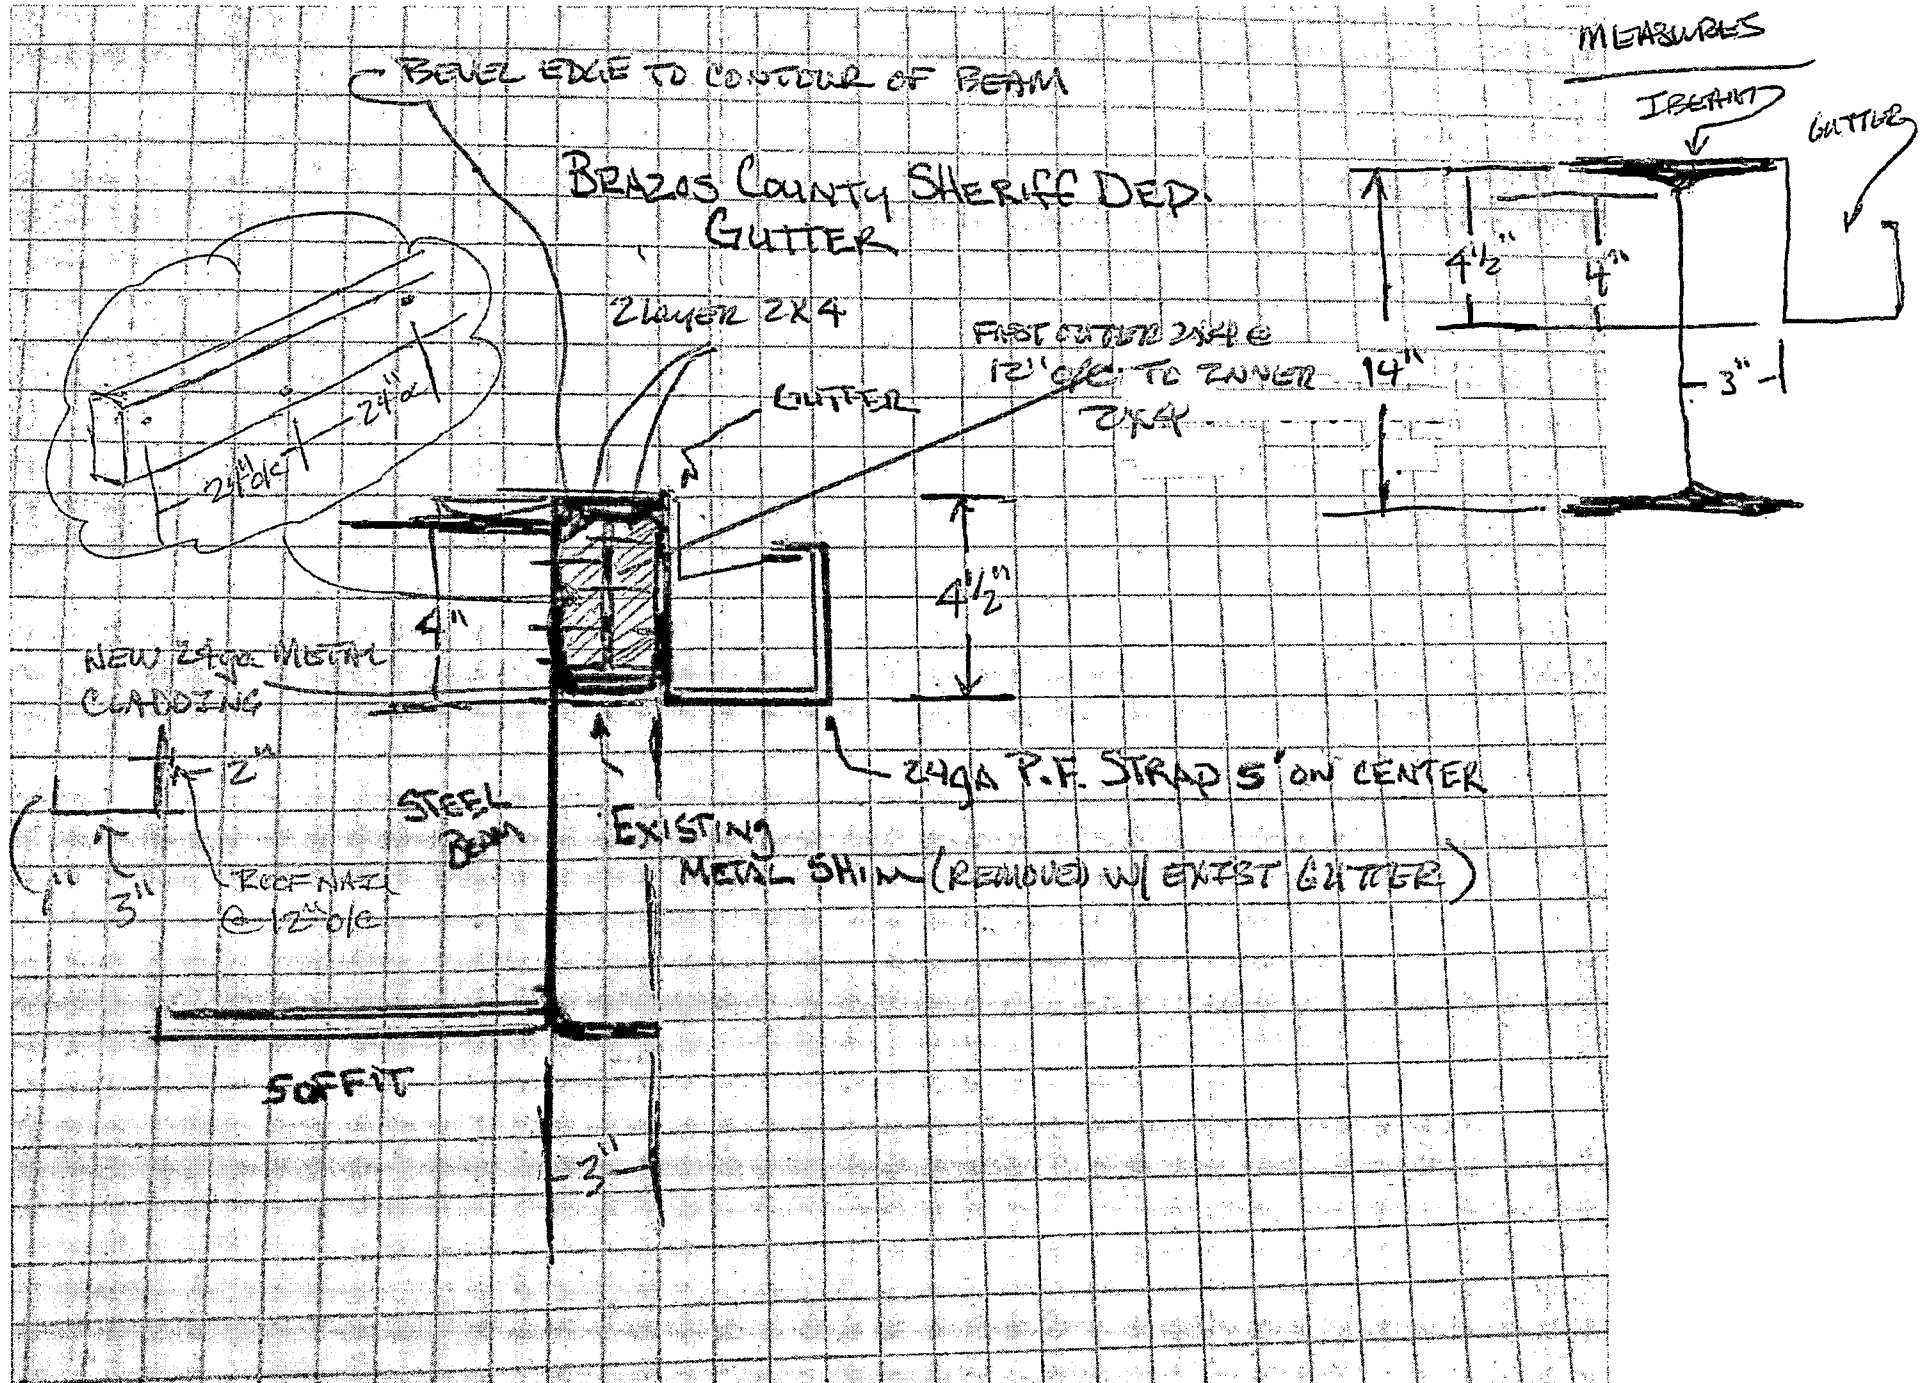 MEASURES
BEVEL EDGE TO CONTOUR OF BEAM
IBEAM
GUTTER
BRAZOS COUNTY SHERIFF DEP.
GUTTER
4 1/2"
4"
2 LAYER 2X4
FAST OUTTER 2X4 @
12" O/C TO INNER
2X4
14"
3"
GUTTER
24" O/C
24" O/C
4"
4 1/2"
NEW 24ga METAL
CLADDING
2"
24ga P.F. STRAP 5' ON CENTER
STEEL
BEAM
EXISTING
METAL SHIM (REMOVED W/ EXIST GUTTER)
1"
3"
ROOF NAIL
@ 12" O/C
SOFFIT
3"